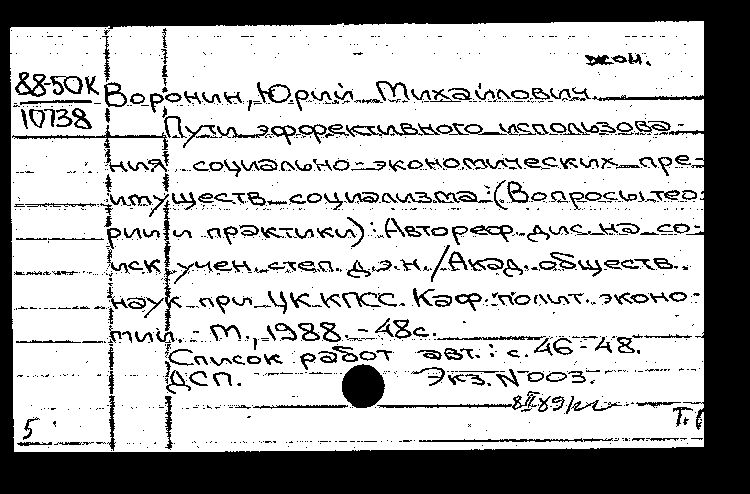 экон.
88-50К
10738
Воронин, Юрий Михайлович.
Пути эффективного использова-
ния социально-экономических пре-
имуществ социализма: (Вопросы тео-
рии и практики): Автореф. дис. на со-
иск. учен. степ. д.э.н. / Акад. обществ.
наук при ЦК КПСС. Каф. полит. эконо-
мии. - М., 1988. - 48с.
Список работ авт.: с. 46-48.
ДСП. Экз. N 003.
5